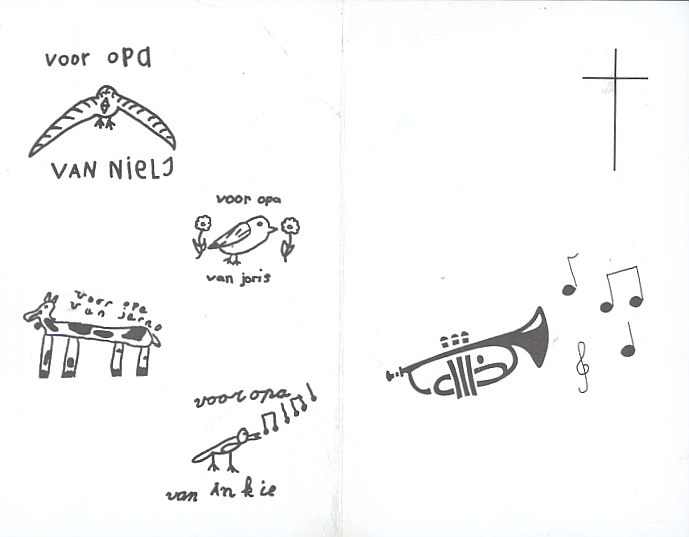 voor opa
VAN NIELS
voor opa
van joris
voor opa
van jarno
voor opa
van Ankie